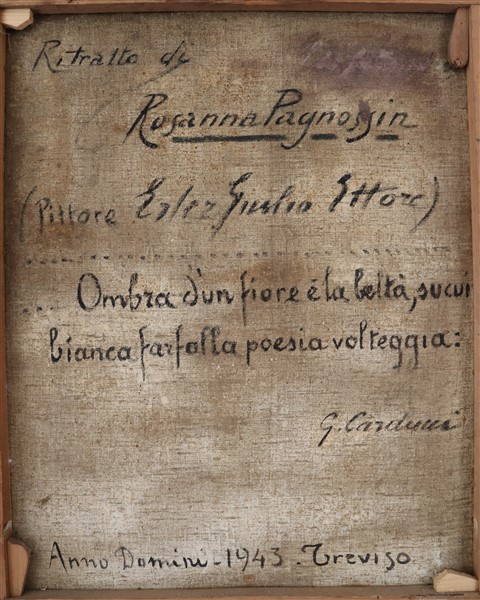 Ritratto di
Rosanna Pagnossin
(Pittore Erler Giulio Ettore)
... Ombra d'un fiore é la beltà, su cui
bianca farfalla poesia volteggia:
G. Carducci
Anno Domini - 1943 - Treviso